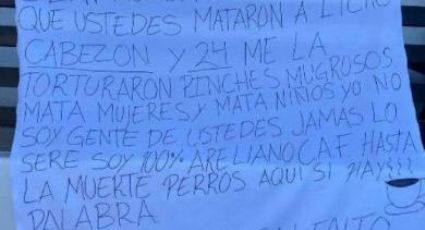 QUE USTEDES MATARON A
CABEZON Y 24 ME LA
TORTURARON PINCHES MUGROSOS
MATA MUJERES Y MATA NIÑOS YO NO
SOY GENTE DE USTEDES JAMAS LO
SERE SOY 100% ARELIANO CAF HASTA
LA MUERTE PERROS AQUI SI HAY
PALABRA